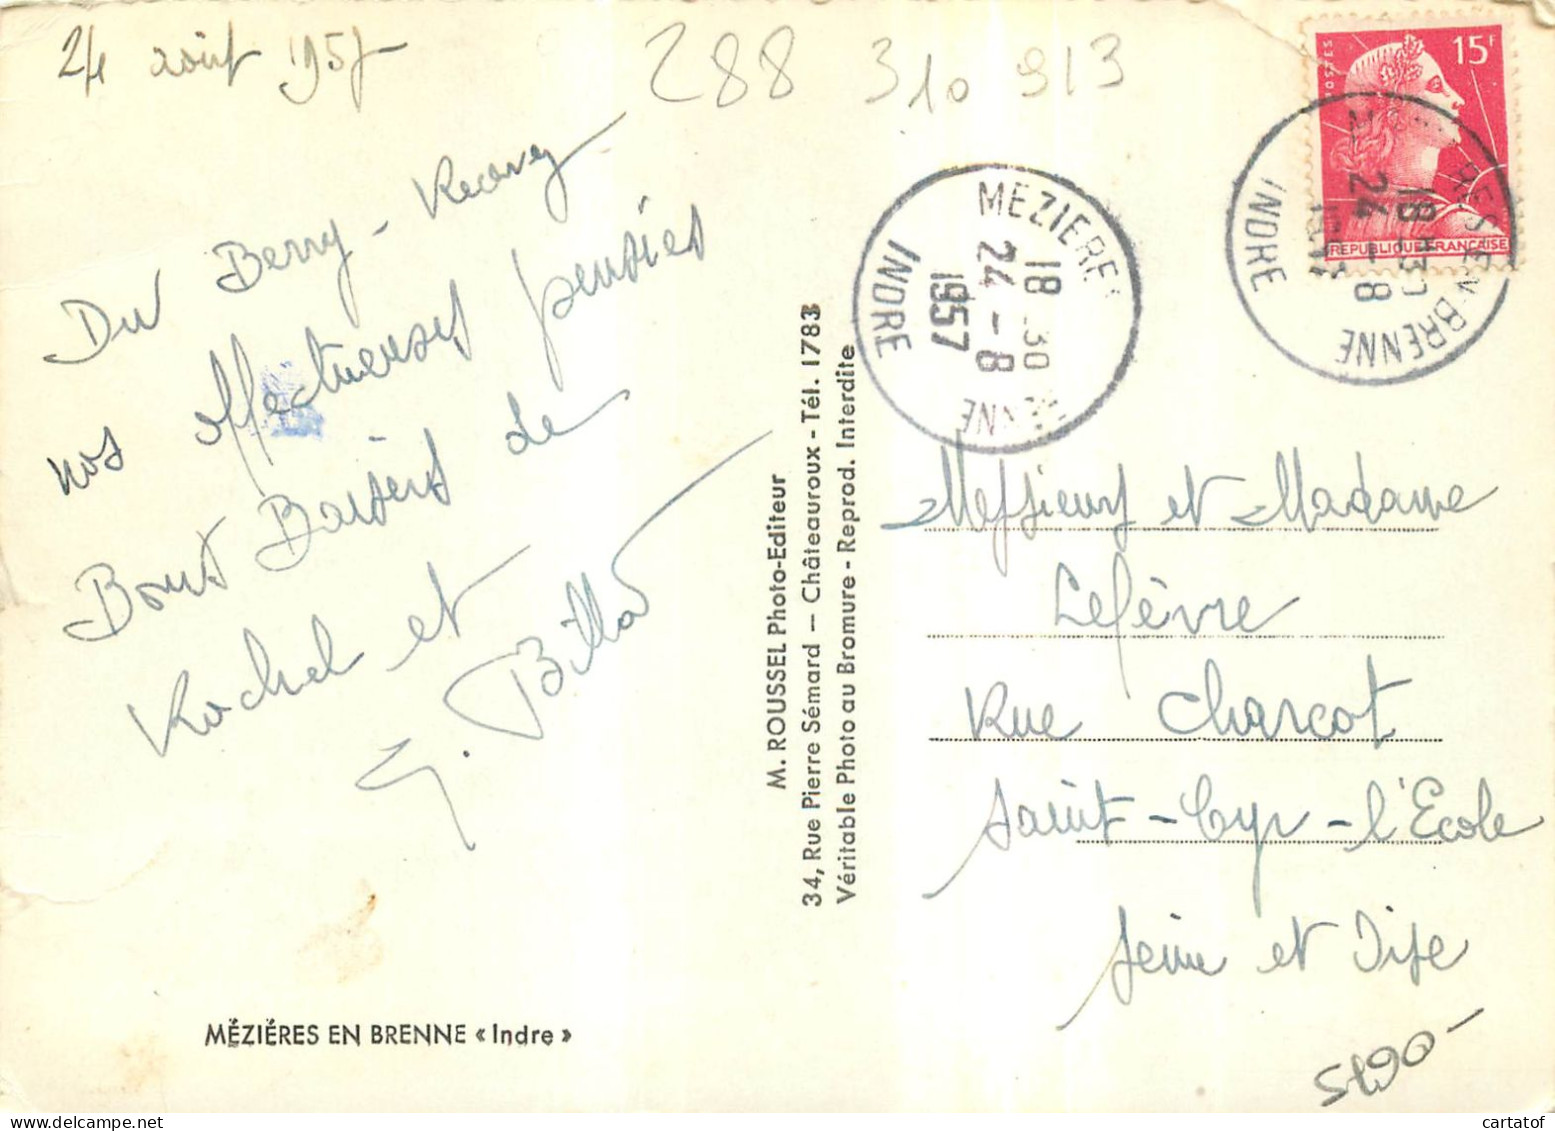 24 août 1957
288 310 913
Du Berry - Recevez
nos affectueuses pensées
Bons Baisers de
Rachel et
G. Billot
MÉZIÈRES EN BRENNE « Indre »
M. ROUSSEL Photo-Editeur
34, Rue Pierre Sémard — Châteauroux - Tél. 1783
Véritable Photo au Bromure - Reprod. Interdite
MEZIERES ENNE
18 30
24 - 8
1957
INDRE
POSTES
15F
REPUBLIQUE FRANÇAISE
RES EN BRENNE
18H30
24 - 8
INDRE
Messieurs et Madame
Lefèvre
Rue Charcot
Saint-Cyr-l'Ecole
Seine et Oise
cartatof